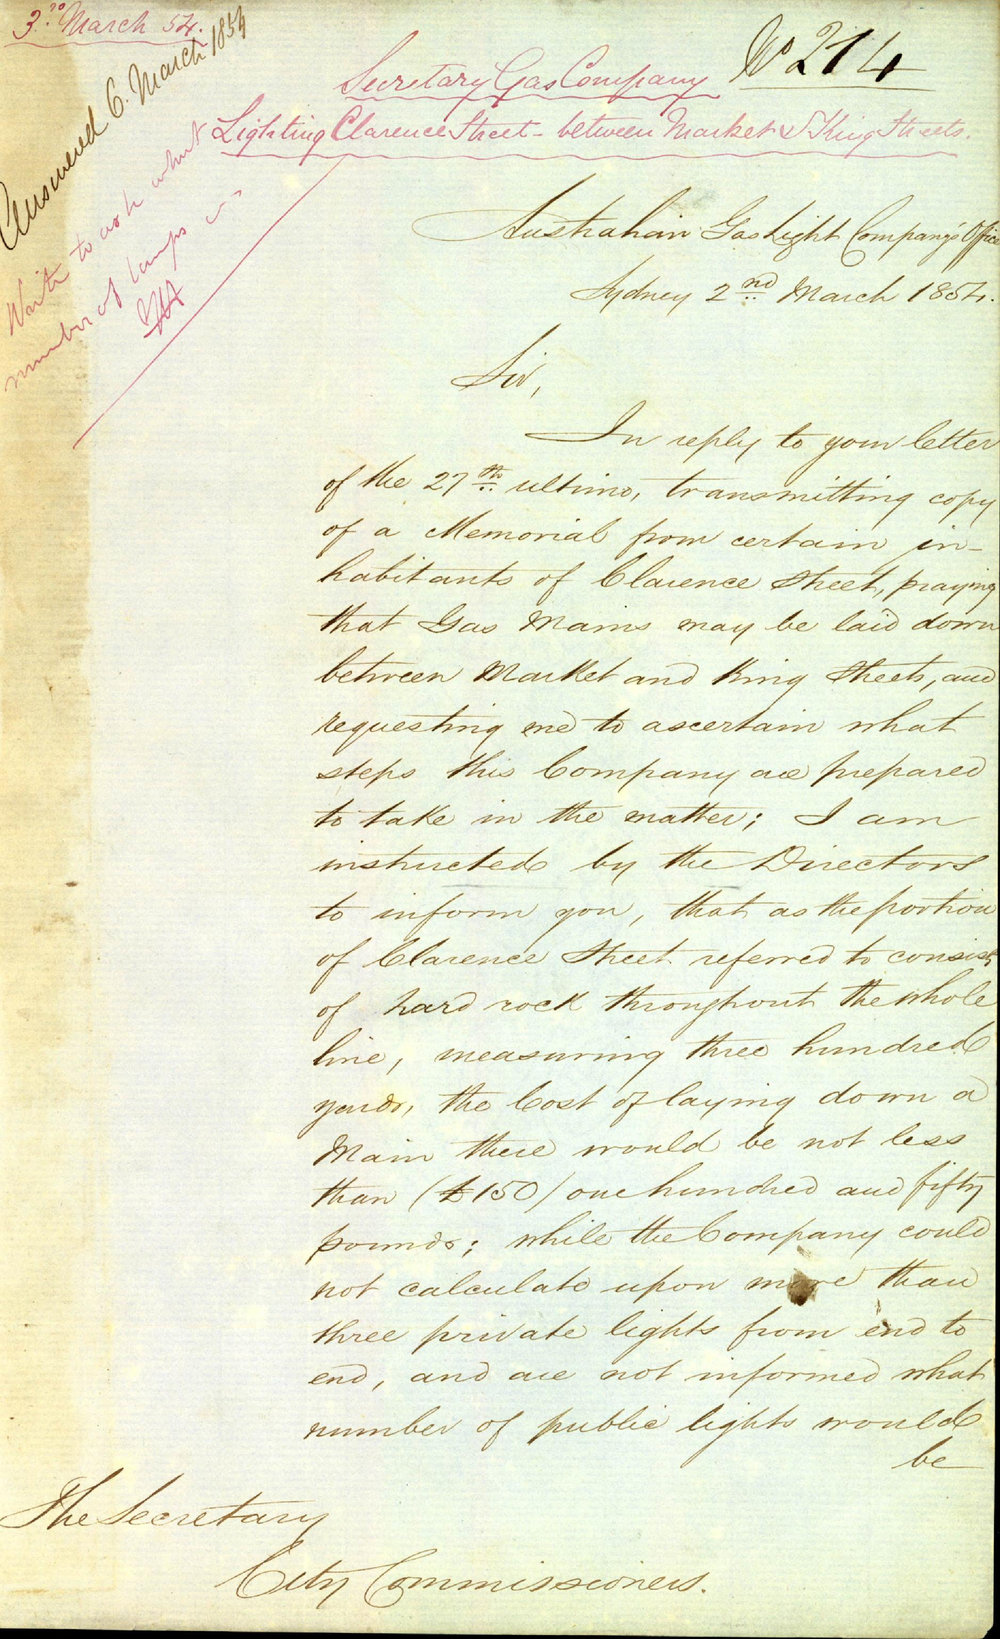 3rd March 54.
Answered 6. March 1854
No 214
Secretary Gas Company
Lighting Clarence Street - between Market & King Streets.
Write to ask what
number of lamps
Australian Gas Light Company's Office
Sydney 2nd March 1854.
Sir,
In reply to your letter
of the 27th ultimo, transmitting copy
of a Memorial from certain in-
habitants of Clarence Street, praying
that Gas Mains may be laid down
between Market and King Streets, and
requesting me to ascertain what
steps this Company are prepared
to take in the matter; I am
instructed by the Directors
to inform you, that as the portion
of Clarence Street referred to consists
of hard rock throughout the whole
line, measuring three hundred
yards, the Cost of laying down a
Main there would be not less
than (£150) one hundred and fifty
pounds; while the Company could
not calculate upon more than
three private lights from end to
end, and are not informed what
number of public lights would
be
The Secretary
City Commissioners.